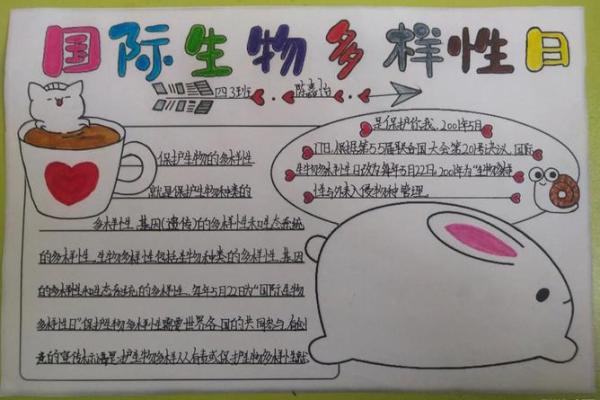 国际生物多样性日
四3班
保护生物的多样性
就是保护生物种类的
多样性,基因(遗传)的多样性和生态系统
的多样性。生物多样性包括生物种类的多样性、基因
的多样性和生态系统的多样性。每年5月22日为“国际生物
多样性日”。保护生物多样性需要世界各国的共同参与。
的宣传标语是:护生物多样人人有责
保护生物多样性就
是保护你我。2001年5月
17日,根据第55届联合国大会第201号决议,国际
生物多样性日改为每年5月22日,2001年为“生物多样
性与外来入侵物种管理。